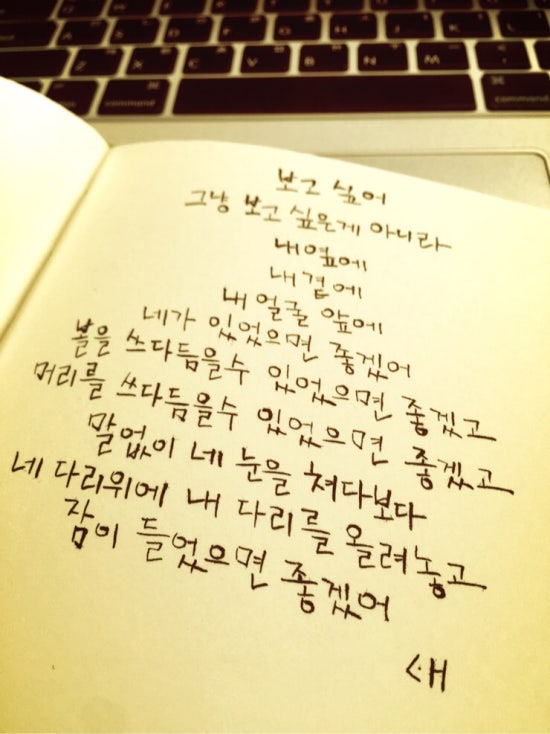 Z X C V B N M
command
command
보고 싶어
그냥 보고 싶은게 아니라
내옆에
내 곁에
내 얼굴 앞에
네가 있었으면 좋겠어
볼을 쓰다듬을수 있었으면 좋겠고
머리를 쓰다듬을수 있었으면 좋겠고
말없이 네 눈을 쳐다보다
네 다리위에 내 다리를 올려놓고
잠이 들었으면 좋겠어